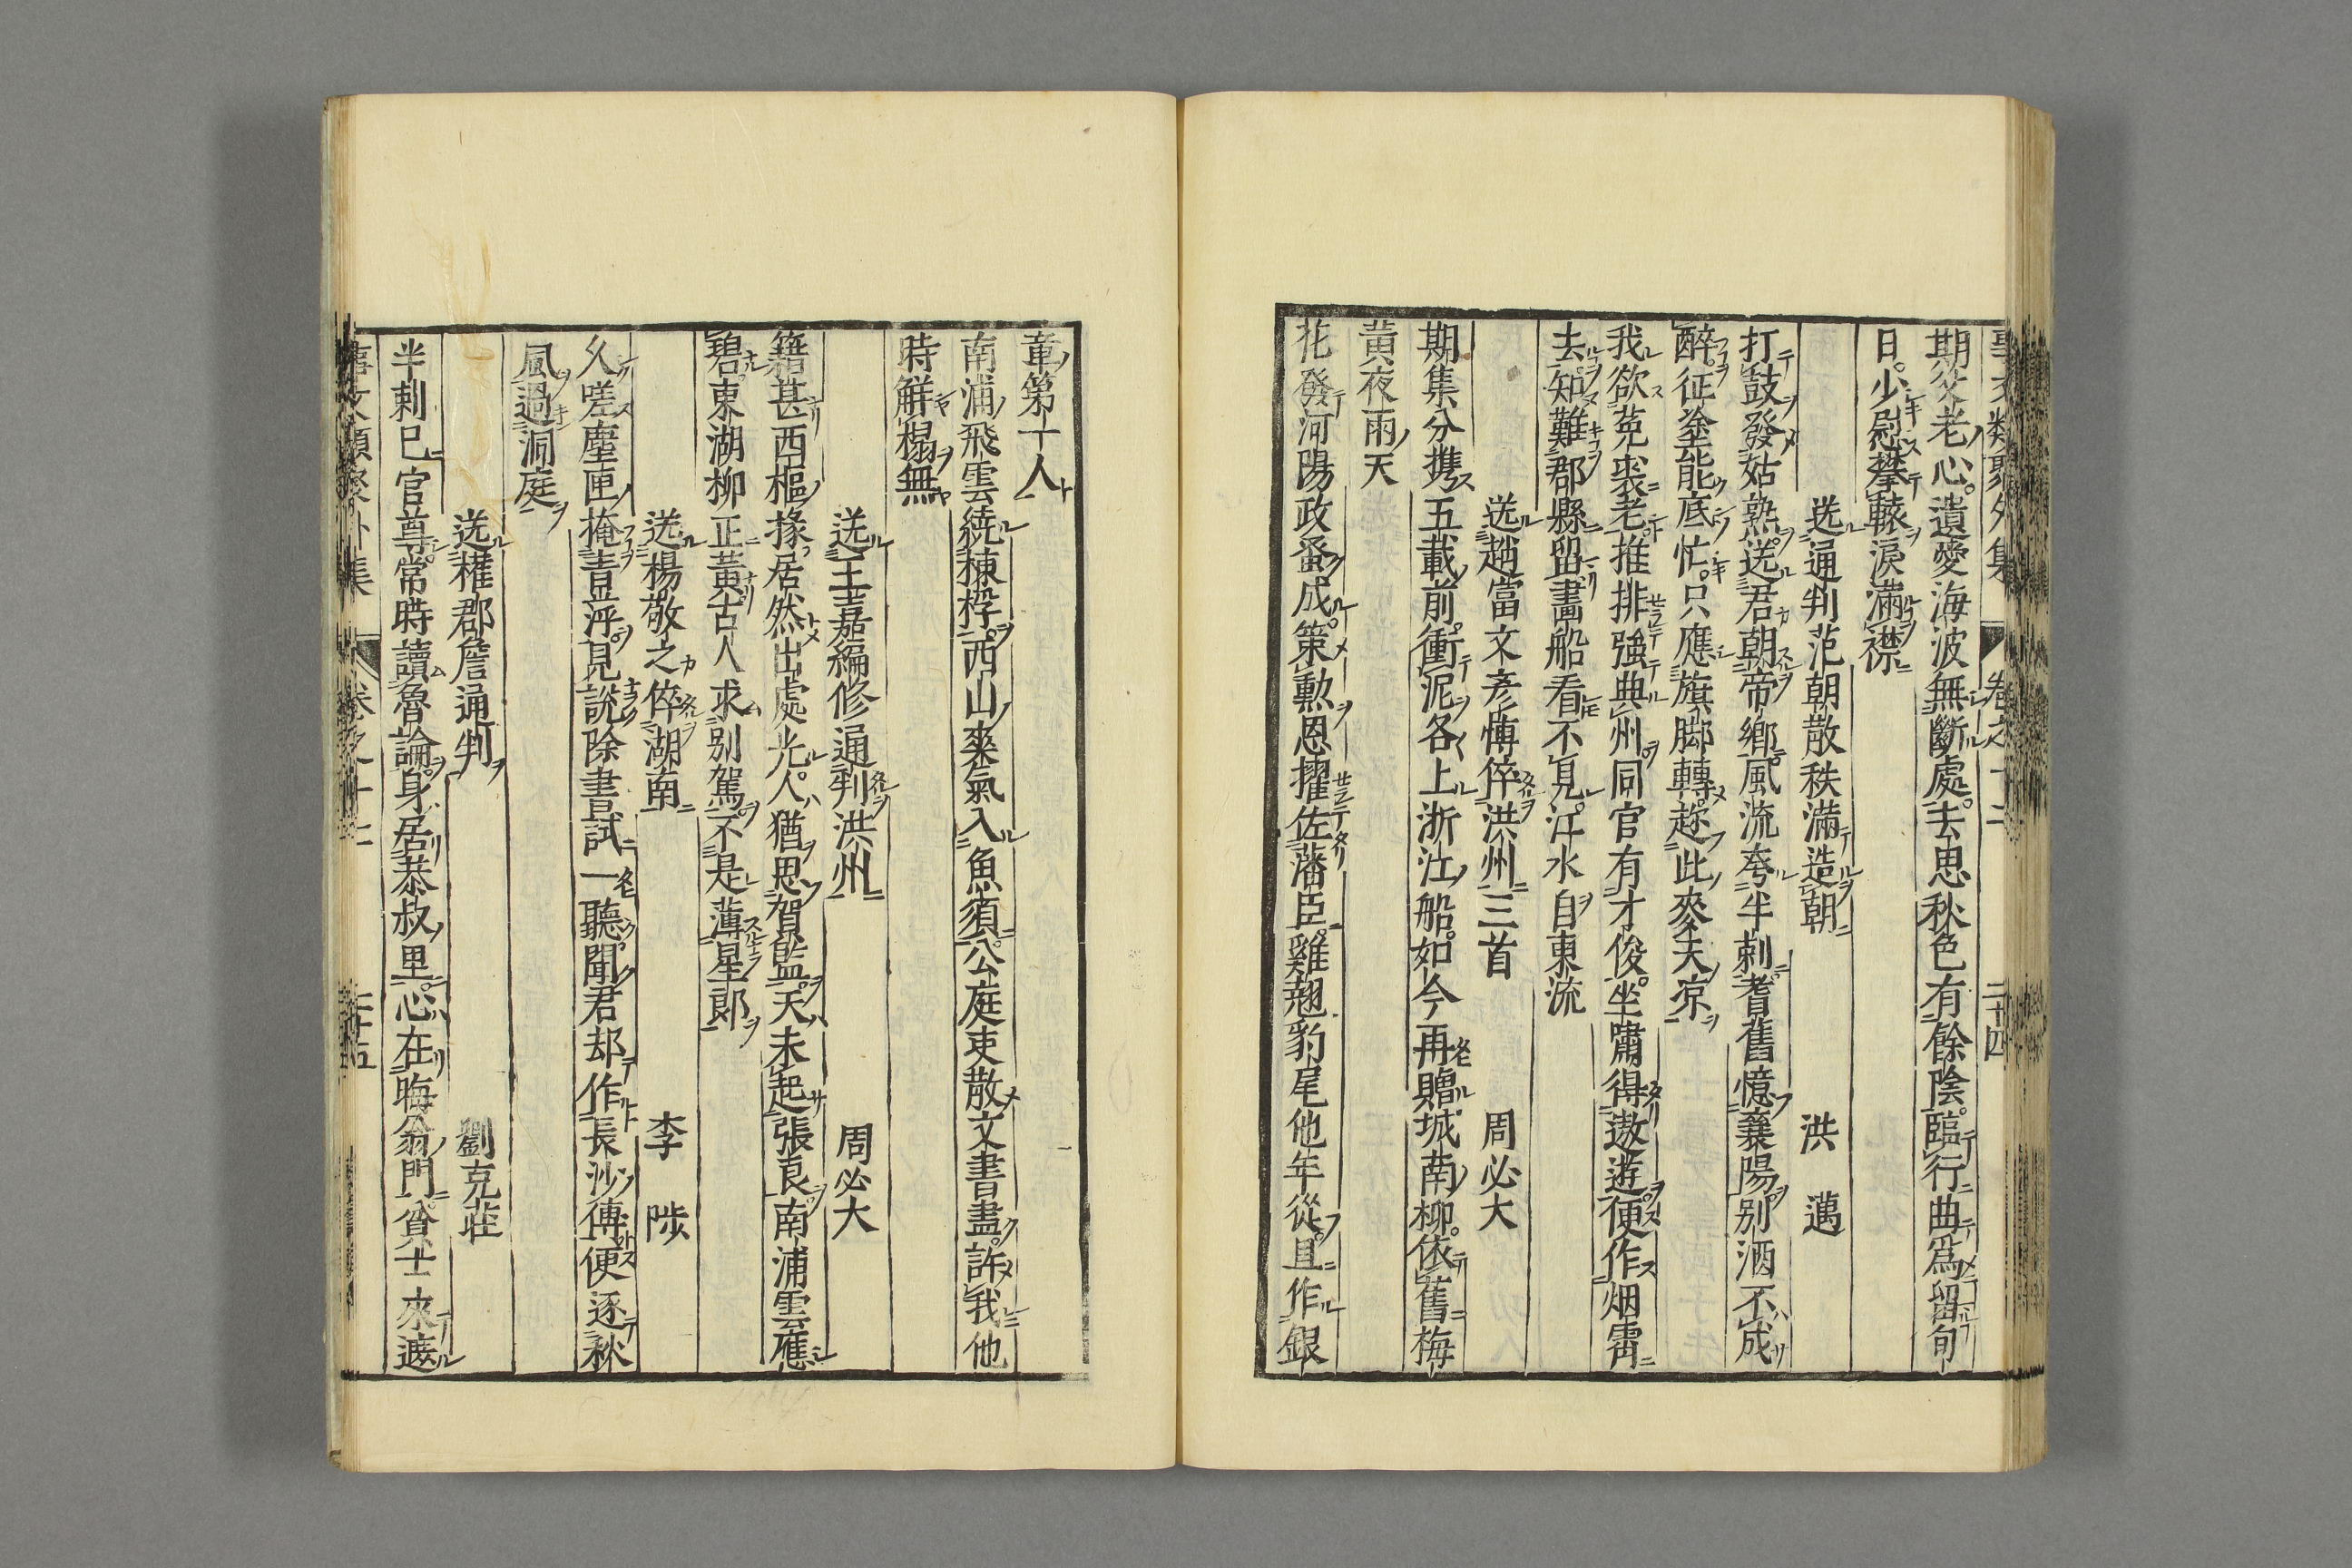 事文類聚外集 卷之十二 二十四
期父老心遺愛海波無斷處去思秋色有餘陰臨行曲爲留旬
日少慰攀轅淚滿襟
送通判范朝散秩滿造朝 洪邁
打鼓發姑熟送君朝帝鄉風流夸半刺耆舊憶襄陽别酒不成
醉征塗能底忙只應旗脚轉趂此麥天凉
我欲莵裘老推排強典州同官有才俊坐嘯得遨遊便作烟霄
去知難郡縣留畵船看不見汙水自東流
送趙當文彦愽倅洪州三首 周必大
期集分携五載前衝泥各上浙江船如今再贈城南柳依舊梅
黄夜雨天
花發河陽政蚤成策勲恩擢佐藩臣雞翹豹尾他年從且作銀
章第十人
南浦飛雲繞棟桴西山爽氣入魚須公庭吏散文書盡許我他
時解榻無
送王嘉編修通判洪州 周必大
籍甚西樞掾居然出處光人猶思賀監天未起張良南浦雲應
碧東湖柳正黄古人求别駕不是薄星郎
送楊敬之倅湖南 李陟
久嗟塵匣掩青萍見說除書試一聽聞君却作長沙傅便逐秋
風過洞庭
送權郡詹通判 劉克莊
半刺已官尊常時讀魯論身居恭叔里心在晦翁門貧士來遮